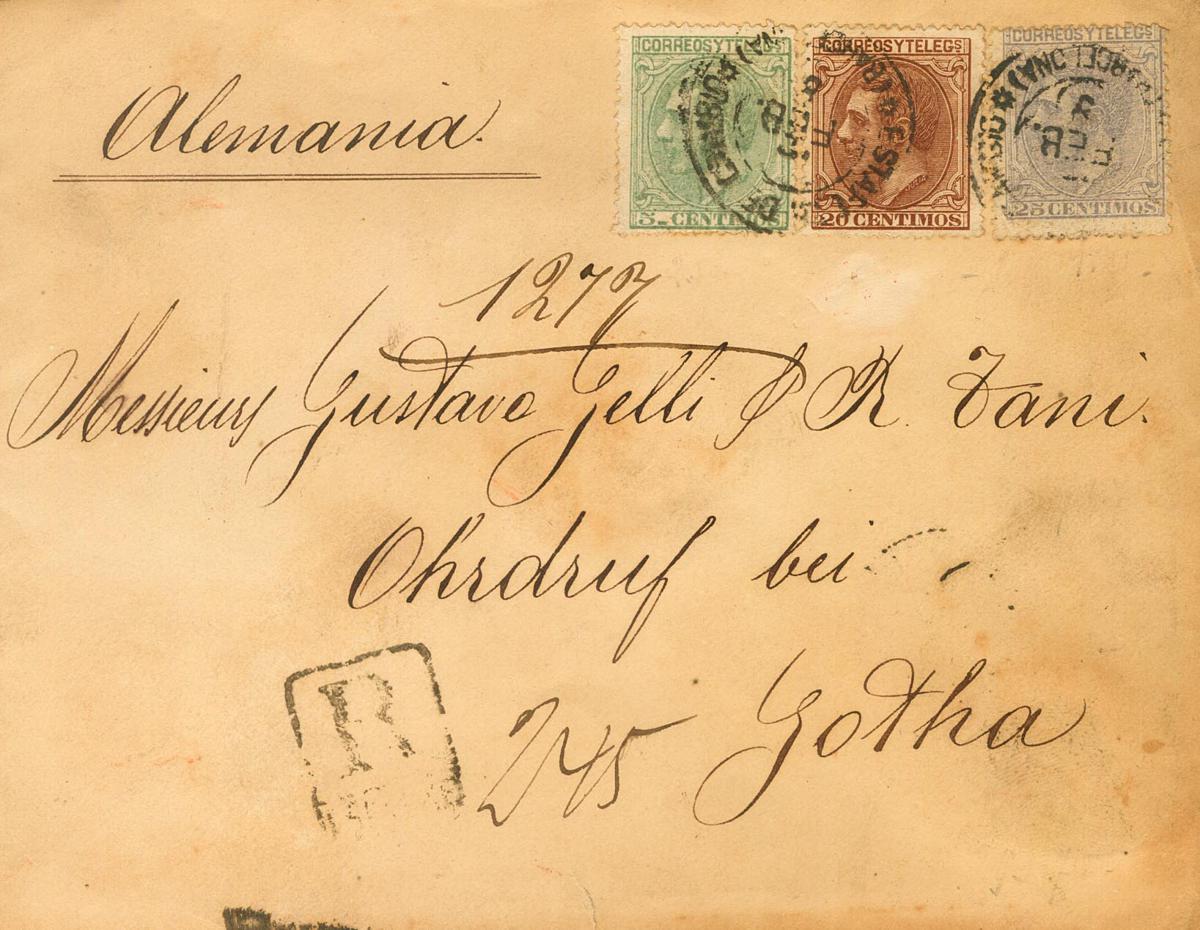 Alemania.
CORREOS Y TELEGS
5 CENTIMOS
CORREOS Y TELEGS
20 CENTIMOS
CORREOS Y TELEGS
25 CENTIMOS
CAMBIO
1277
Messieurs Gustavo Gelli & R. Tani.
Ohrdruf bei
Gotha
R
245